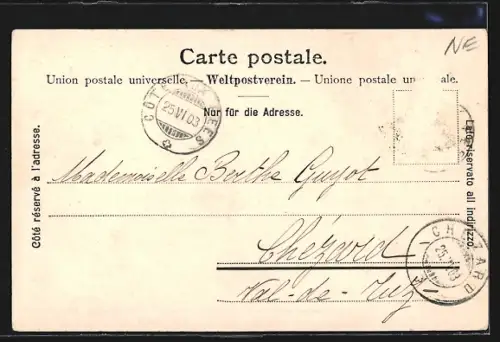 NE
Carte postale.
Union postale universelle. — Weltpostverein. — Unione postale un ale.
Nur für die Adresse.
Côté réservé à l'adresse.
Lato riservato all indirizzo.
25.VI.03
Mademoiselle Berthe Guyot
Chézard
Val-de-Ruz
CHÉZARD
25.VI.03